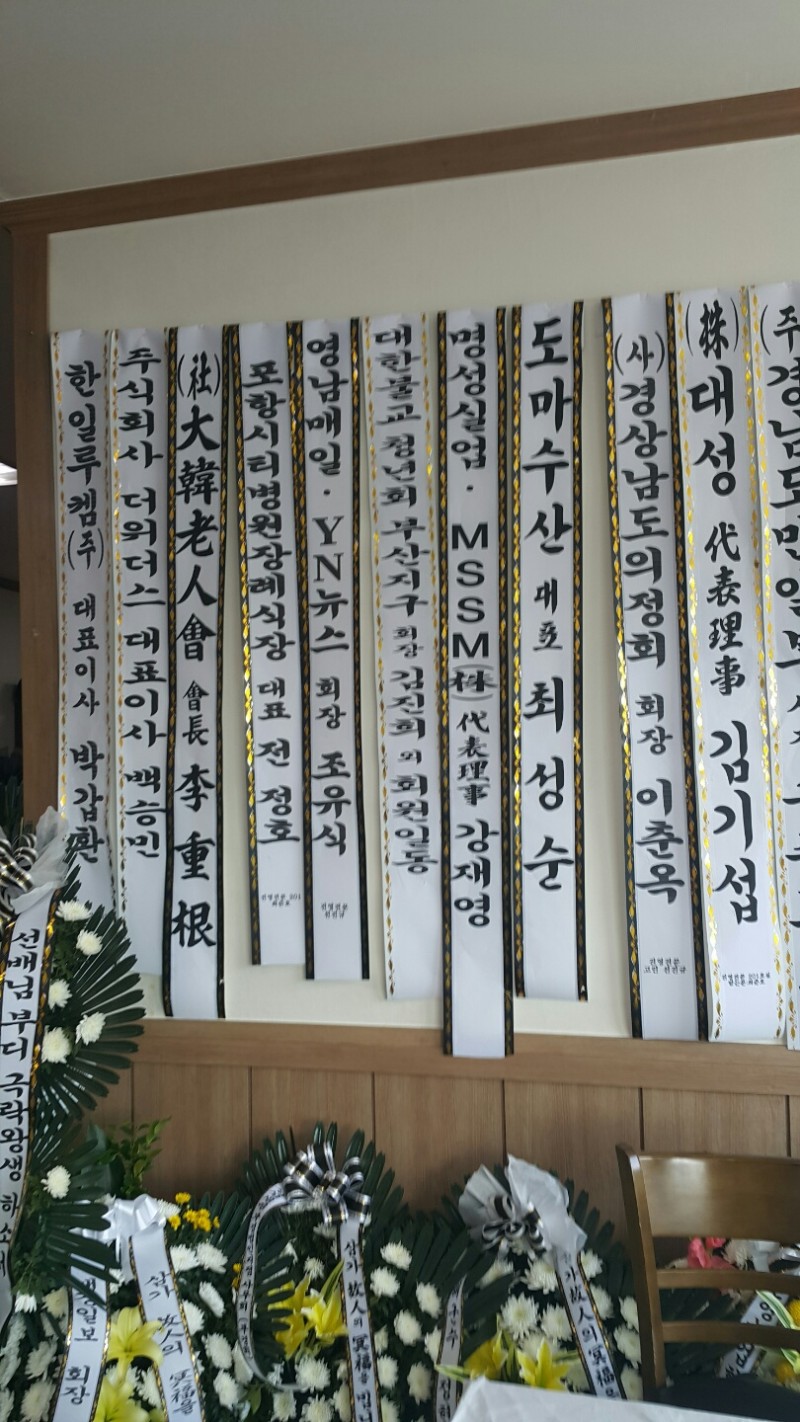 한일루켐(주) 대표이사 박갑환
주식회사 더위더스 대표이사 백승민
(社)大韓老人會 會長 李重根
포항시티병원장례식장 대표 전정호
영남매일·YN뉴스 회장 조유식
대한불교청년회 부산지구 회장 김진희 외 회원일동
명성실업·MSSM(株) 代表理事 강재영
도마수산 대표 최성순
(사)경상남도의정회 회장 이춘옥
(株)대성 代表理事 김기섭
(주)경남도민일보
선배님 부디 극락왕생 하소서
일보 회장
삼가 故人의 冥福을
삼가 故人의 冥福을 빕니
삼가 故人의 冥福을